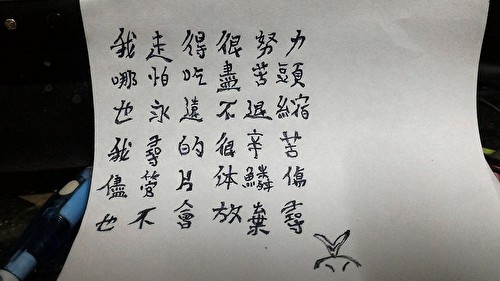 我走得很努力
哪怕吃盡苦頭
也永遠不退縮
我尋的很辛苦
儘管片体鱗傷
也不會放棄尋